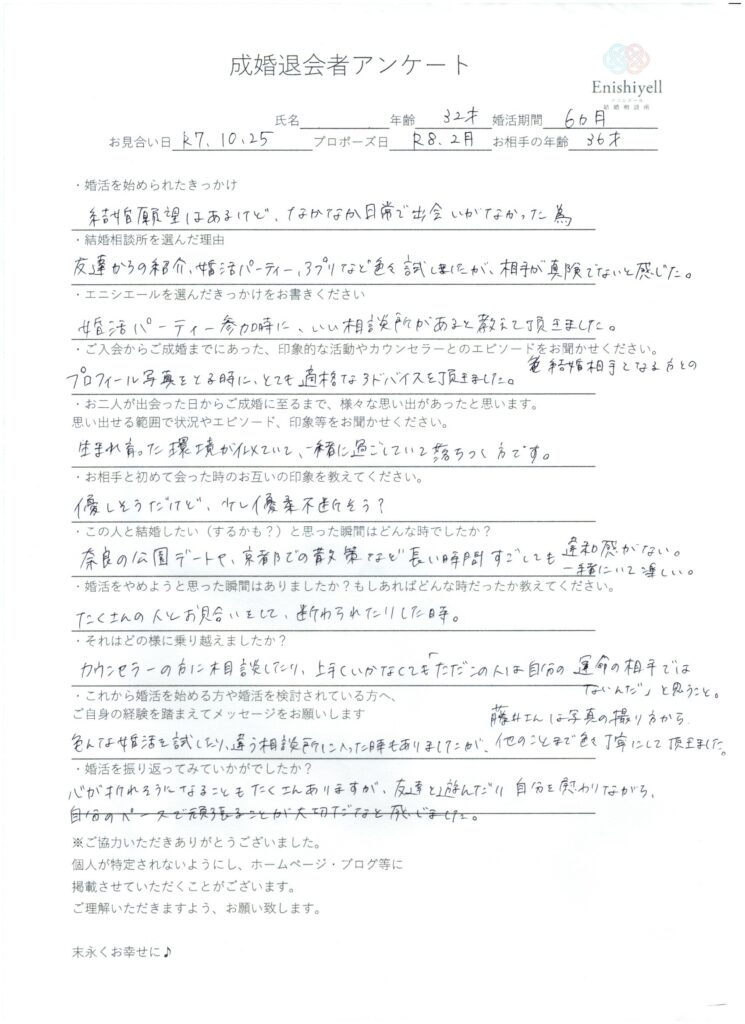 成婚退会者アンケート
Enishiyell
エニシエール
結婚相談所
氏名 年齢 32才 婚活期間 6カ月
お見合い日 R7.10.25 プロポーズ日 R8.2月 お相手の年齢 36才
・婚活を始められたきっかけ
結婚願望はあるけど、なかなか日常で出会いがなかった為
・結婚相談所を選んだ理由
友達からの紹介、婚活パーティー、アプリなど色々試しましたが、相手が真険でないと感じた。
・エニシエールを選んだきっかけをお書きください
婚活パーティー参加時に、いい相談所があると教えて頂きました。
・ご入会からご成婚までにあった、印象的な活動やカウンセラーとのエピソードをお聞かせください。
プロフィール写真をとる時に、とても適格なアドバイスを頂きました。
結婚相手となる方との
・お二人が出会った日からご成婚に至るまで、様々な思い出があったと思います。
思い出せる範囲で状況やエピソード、印象等をお聞かせください。
生まれ育った環境が似ていて、一緒に過ごしていて落ちつく方です。
・お相手と初めて会った時のお互いの印象を教えてください。
優しそうだけど、少し優柔不断そう?
・この人と結婚したい（するかも？）と思った瞬間はどんな時でしたか？
奈良の公園デートや、京都での散策など長い時間すごしても違和感がない。
一緒にいて楽しい。
・婚活をやめようと思った瞬間はありましたか？もしあればどんな時だったか教えてください。
たくさんの人とお見合いをして、断わられたりした時。
・それはどの様に乗り越えましたか？
カウンセラーの方に相談したり、上手くいかなくても「ただこの人は自分の運命の相手では
ないんだ」と思うこと。
・これから婚活を始める方や婚活を検討されている方へ、
ご自身の経験を踏まえてメッセージをお願いします
藤井さんは写真の撮り方から
色んな婚活を試したり、違う相談所に入った時もありましたが、他のことまで色々丁寧にして頂きました。
・婚活を振り返ってみていかがでしたか？
心が折れそうになることもたくさんありますが、友達と遊んだり自分を慰わりながら、
自分のペースで頑張ることが大切だなと感じました。
※ご協力いただきありがとうございました。
個人が特定されないようにし、ホームページ・ブログ等に
掲載させていただくことがございます。
ご理解いただきますよう、お願い致します。
末永くお幸せに♪